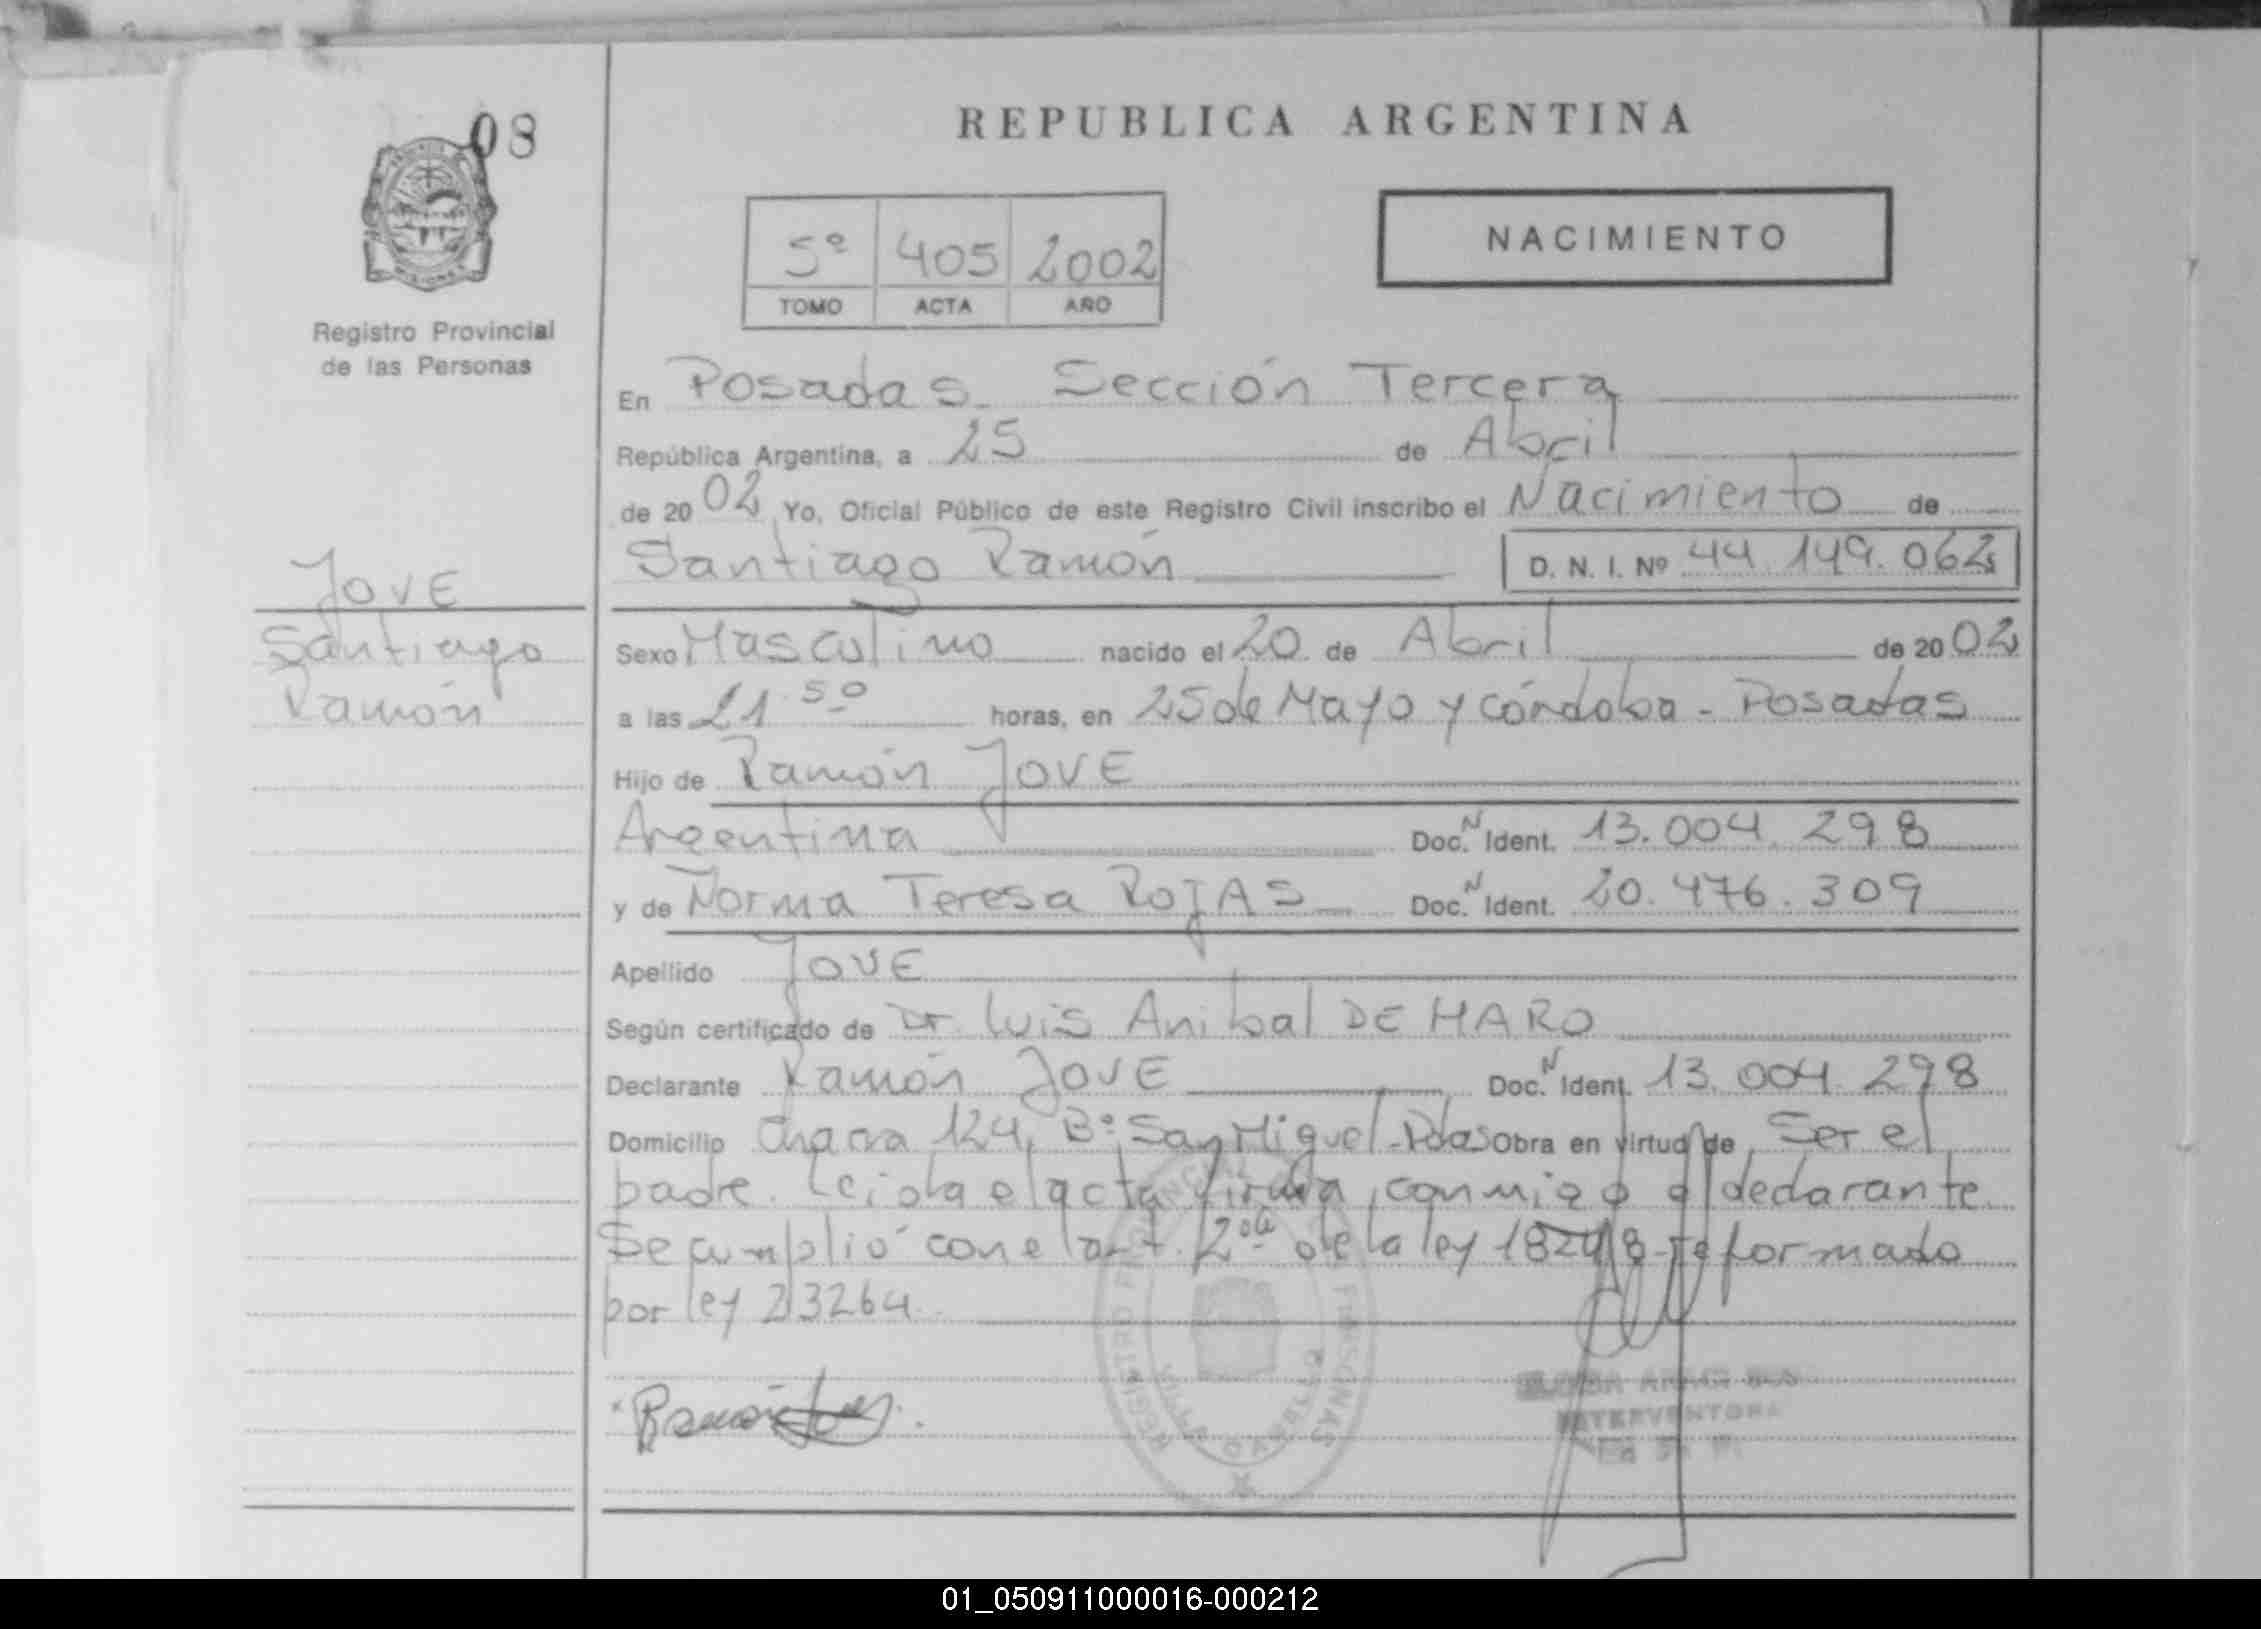 08
REPUBLICA ARGENTINA
5º 405 2002
TOMO ACTA AÑO
NACIMIENTO
Registro Provincial
de las Personas
En Posadas. Sección Tercera
República Argentina, a 25 de Abril
de 20 02 Yo, Oficial Público de este Registro Civil inscribo el Nacimiento de
Santiago Ramón D. N. I. Nº 44.149.062
JOVE
Santiago
Ramón
Sexo Masculino nacido el 20 de Abril de 20 02
a las 21 50 horas, en 25 de Mayo y Córdoba - Posadas
Hijo de Ramón JOVE
Argentina Doc. N Ident. 13.004.298
y de Norma Teresa ROJAS Doc. N Ident. 20.476.309
Apellido JOVE
Según certificado de Dr. Luis Anibal DE HARO
Declarante Ramón JOVE Doc. N Ident. 13.004.298
Domicilio Chacra 124, Bº San Miguel - Pdas Obra en virtud de Ser el
padre. Leida el acta firma conmigo el declarante
Se cumplió con el art. 2º de la ley 18248 reformado
por ley 23264.
REGISTRO PROVINCIAL DE LAS PERSONAS
VILLA CABELLO
INTERVENTORA
01_050911000016-000212